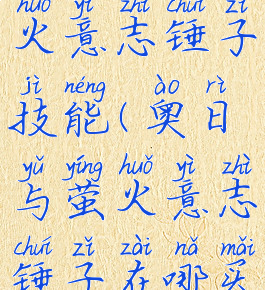 huǒ yì zhì chuí zǐ
火意志锤子
jì néng ào rì
技能(奥日
yǔ yíng huǒ yì zhì
与萤火意志
chuí zǐ zài nǎ mǎi
锤子在哪买